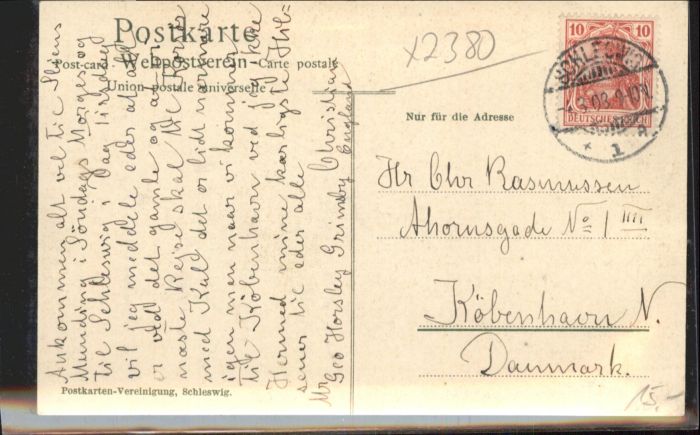 Postkarte
Post-card — Weltpostverein — Carte postale
Union postale universelle
x2380
Nur für die Adresse
10 10
DEUTSCHES REICH
SCHLESWIG
* 1 a
Hr Chr Rasmussen
Ahornsgade No 1 IIII
Köbenhavn N.
Danmark.
15.-
Ankommen alt vel til Slens
Munding i Söndags Morges og
til Schleswig i Dag Tirsdag
vil jeg meddele eder at alt
er ved det gamle og at
naste Rejse skal til
med Kul det er lidt
igen men naar vi kommer
til Köbenhavn ved jeg ikke
Hermed mine kærligste Hil-
sener til eder alle
Christian
Mr Geo Horsley Grimsby England
Postkarten-Vereinigung, Schleswig.